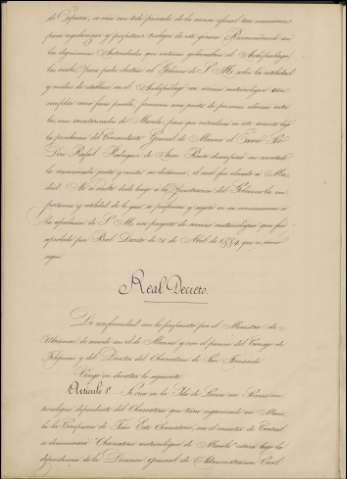 de Filipinas, se creia con todo fundada de la misma oficial con numerosos
para regularizar y perfeccionar trabajos de este género. Reconociéndolo así
las dignísimas Autoridades que entonces gobernaban el Archipiélago,
las cuales, para poder ilustrar al Gobierno de S. M. sobre la utilidad
y medios de establecer en el Archipiélago un servicio meteorológico tan
completo como fuera posible, formaron una junta de personas idóneas entre
las mas caracterizadas de Manila, para que entendiese en este asunto bajo
la presidencia del Comandante General de Marina el Excmo Sr.
Don Rafael Rodriguez de Arias. Pronto desempeñó su cometido
la mencionada junta y emitió su dictamen, el cual fue elevado a Ma-
drid. No se ocultó desde luego a la ilustracion del Gobierno la im-
portancia y utilidad de lo que se proponia y sugirió en su consecuencia a
la aprobacion de S. M. un proyecto de servicio meteorológico que fué
aprobado por Real Decreto de 28 de Abril de 1884, que es como
sigue.
Real Decreto.
De conformidad con lo propuesto por el Ministro de
Ultramar, de acuerdo con el de Marina y con el parecer del Consejo de
Filipinas y del Director del Observatorio de San Fernando
Vengo en decretar lo siguiente:
Articulo 1º. Se crea en la Isla de Luzon un Servicio me-
teorológico dependiente del Observatorio que tiene organizado en Mani-
la la Compañia de Jesus. Este Observatorio, con el caracter de Central
se denominará "Observatorio meteorológico de Manila" estará bajo la
dependencia de la Direccion general de Administracion Civil